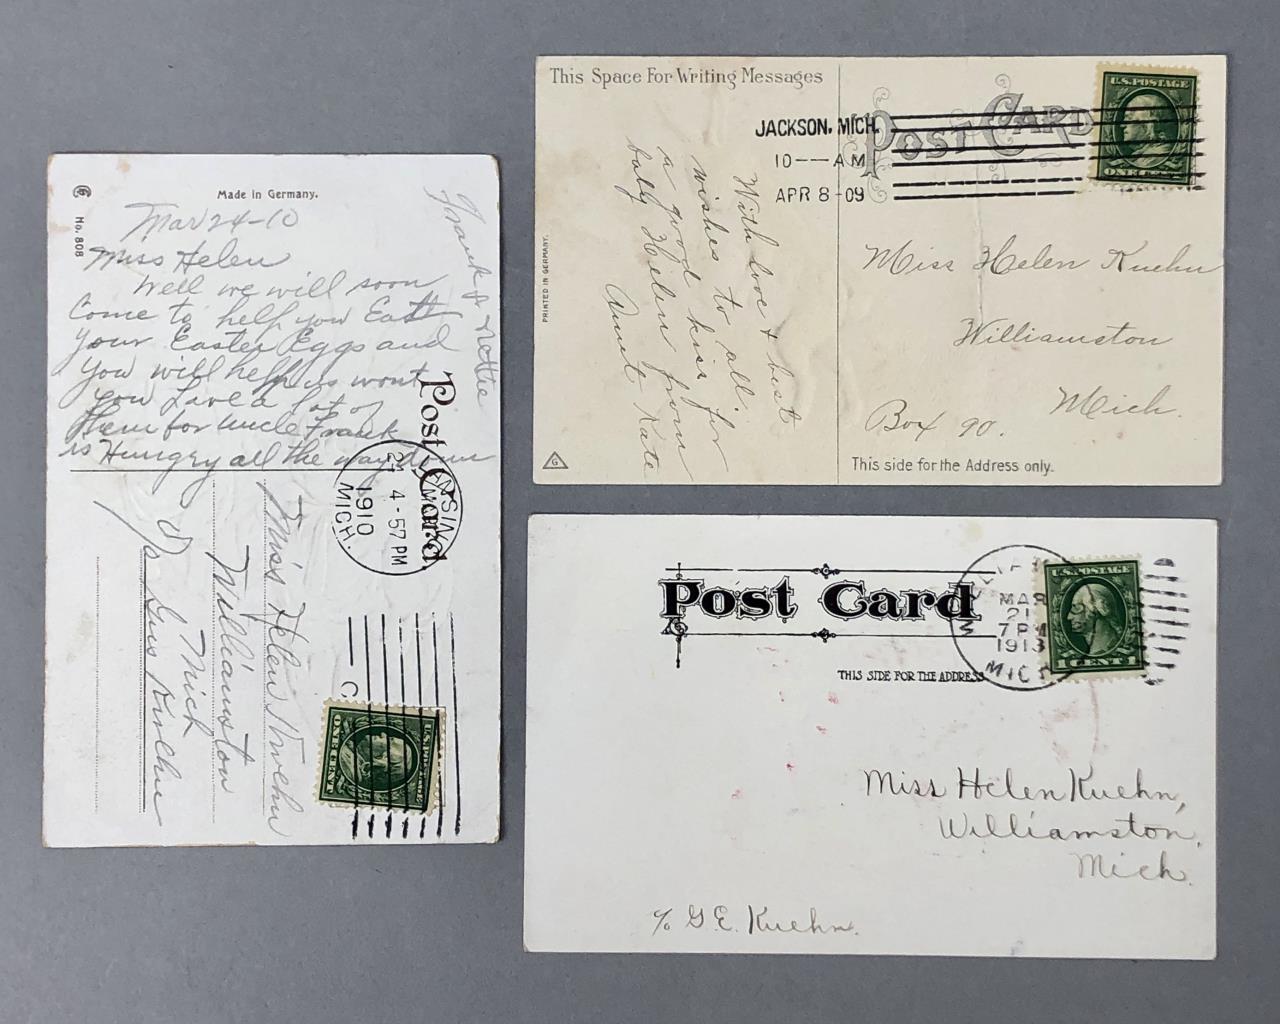 Made in Germany.
No. 808
Mar 24-10
Miss Helen
Well we will soon
Come to help you Eatt
your Easter Eggs and
you will help us wont
you Have a lot of
them for Uncle Frank
is Hungry all the way down
Frank & Nettie
Post Card
24
4-57 PM
1910
MICH.
Miss Helen Kuehn
Williamston
Mich
Gus Kuehn
U.S. POSTAGE
ONE CENT
This Space For Writing Messages
POST CARD
JACKSON, MICH.
10--AM
APR 8-09
U.S. POSTAGE
ONE CENT
PRINTED IN GERMANY.
With love & best
wishes to all.
a good kiss for
baby Helen from
Aunt Kate
Miss Helen Kuehn
Williamston
Mich.
Box 90.
G
This side for the Address only.
Post Card
THIS SIDE FOR THE ADDRESS
MAR
21
7 PM
1913
MICH
U.S. POSTAGE
1 CENT 1
Miss Helen Kuehn,
Williamston,
Mich.
c/o G.E. Kuehn.